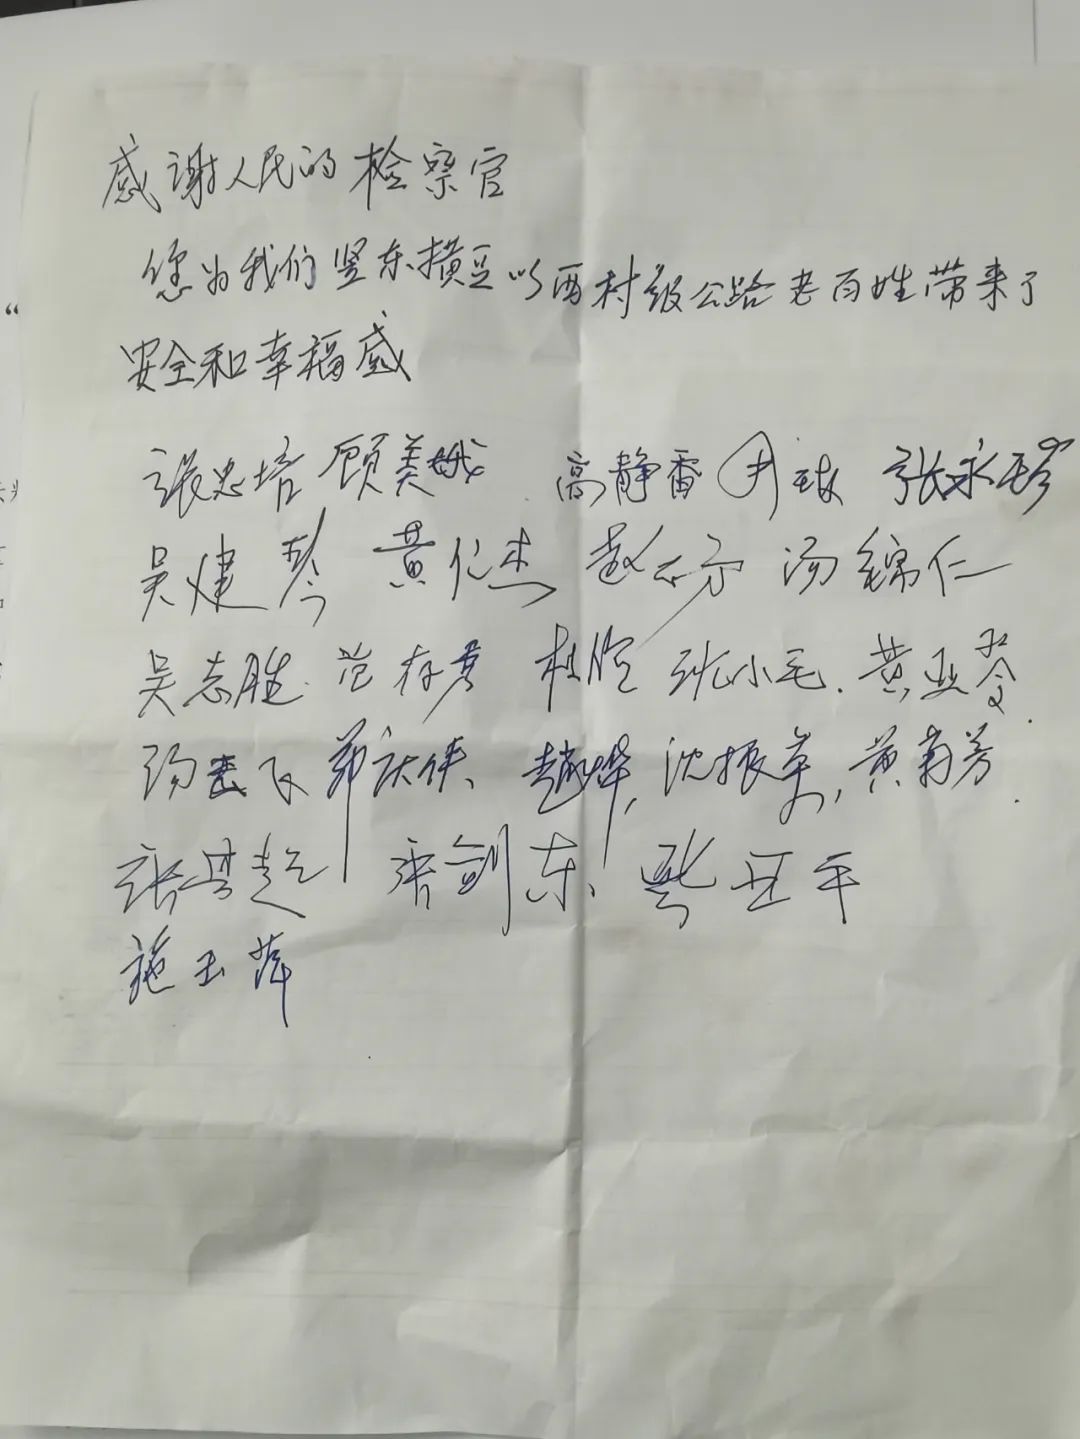 感谢人民的检察官
您为我们竖东横豆以西村级公路老百姓带来了
安全和幸福感
张忠培 顾美娥 高静香 张永珍
吴建琴 黄仁杰 赵 汤锦仁
吴志胜 范存 张小毛 黄亚琴
汤 飞 郑庆侠 赵 沈振 黄菊芳
张 剑东 亚平
施玉萍